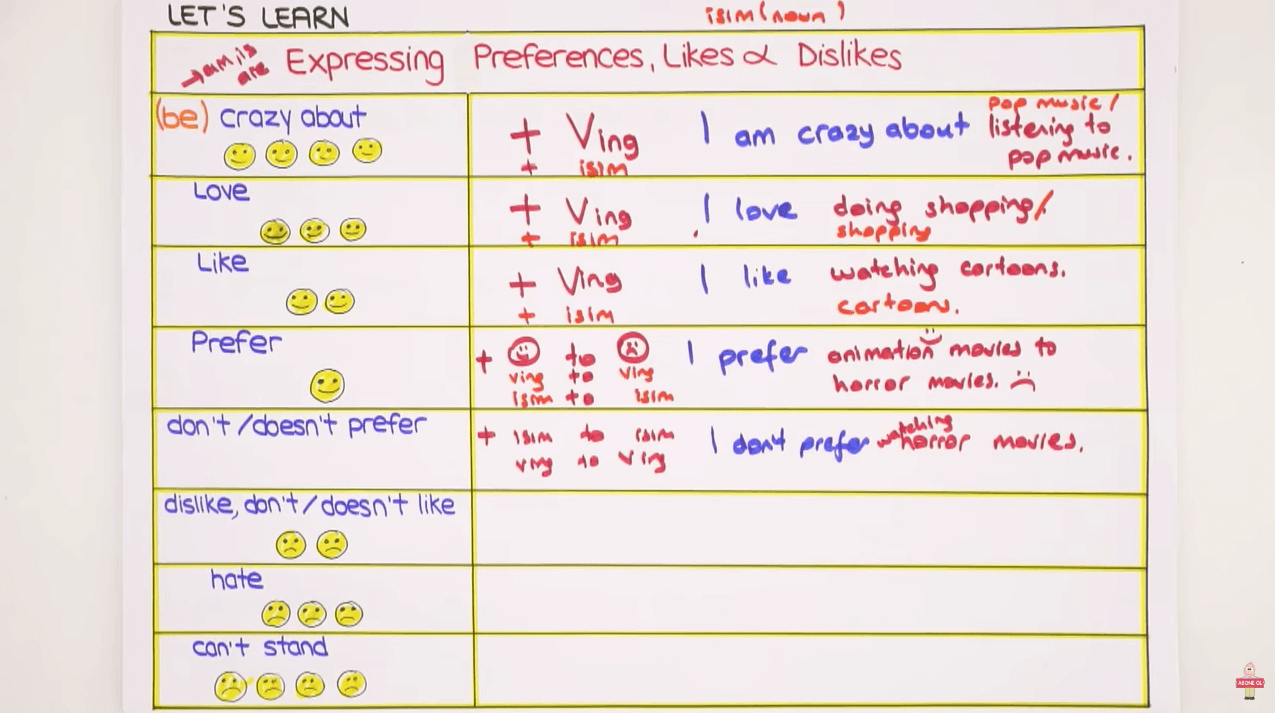 LET'S LEARN
isim (noun)
→am, is are Expressing Preferences, Likes & Dislikes
(be) crazy about
+ Ving
+ isim
I am crazy about pop music /
listening to
pop music.
Love
+ Ving
+ isim
I love doing shopping /
shopping
Like
+ Ving
+ isim
I like watching cartoons.
cartoons.
Prefer
+ to
ving to ving
isim to isim
I prefer animation movies to
horror movies.
don't / doesn't prefer
+ isim to isim
ving to ving
I don't prefer watching horror movies.
dislike, don't / doesn't like
hate
can't stand
ABONE OL